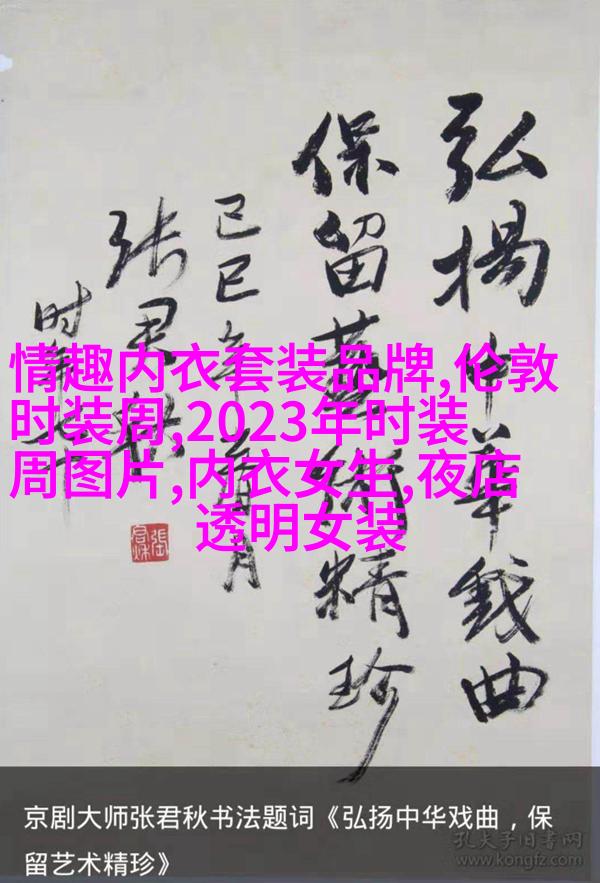 弘揚中華戲曲
保留藝術精珍
己巳年月
张君秋
时年
情趣内衣套装品牌,伦敦
时装周,2023年时装
周图片,内衣女生,夜店
透明女装
京剧大师张君秋书法题词《弘扬中华戏曲，保
留艺术精珍》
孔夫子旧书网
www.kongfz.com